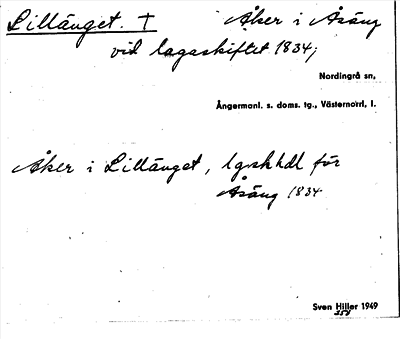 Lillänget. † Åker i Åsäng
vid lagaskiftet 1834;
Nordingrå sn,
Ångermanl. s. doms. tg., Västernorrl, l.
Åker i Lillänget, lgskhdl för
Åsäng 1834
Sven Hiller 1949